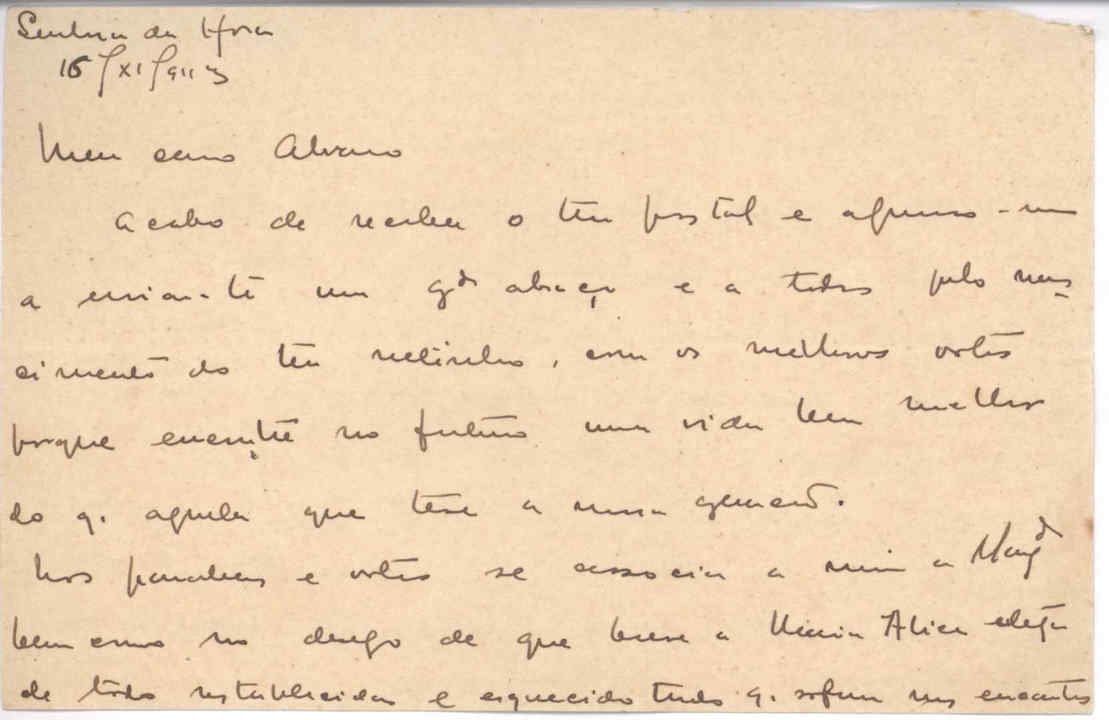 Senhora da Hora
16/XI/
Meu caro Alvaro
Acabo de receber o teu postal e apresso-me
a enviar-te um gde abraço e a todos pelo nas-
cimento do teu netinho, com os melhores votos
porque encontre no futuro uma vida bem melhor
do q. aquela que teve a nossa geração.
Nos parabens e votos se associa a mim a
bem como no desejo de que breve a Maria Alice esteja
de todo restabelecida e esquecido tudo q. sofreu nos encantos